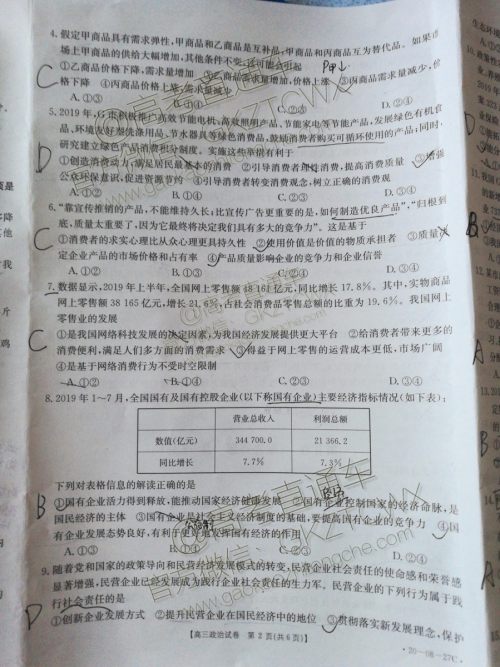 4. 假定甲商品具有需求弹性,甲商品和乙商品是互补品,甲商品和丙商品互为替代品。如果市
场上甲商品的供给大幅增加,其他条件不变,
①乙商品价格下降,需求量增加 ②乙商品需求量增加,价格上涨 ③丙商品需求量减少,价
格下降 ④丙商品价格上涨,需求量减少
A. ①③ B. ①④ C. ②③ D. ②④
C
P甲↓
5. 2019年,G市积极推广高效节能电机、高效照明产品、节能家电等节能产品,发展绿色有机食
品、环境友好型洗涤用品、节水器具等绿色消费品,鼓励消费者购买可循环使用的产品;同时,
研究建立绿色产品消费积分制度。实施这些举措有利于
①创造消费动力,满足居民最基本的消费 ②引导消费者理性消费,提高消费质量 ③增强
公众环保意识,促进资源节约 ④引导消费者转变消费观念,树立正确的消费观
A. ①② B. ①③ C. ②④ D. ③④
D
6. “靠宣传推销的产品,不能维持久长;比宣传广告更重要的是,如何制造优良产品”,“归根到
底,质量太重要了,因为它最终将决定我们具有多大的竞争力”。这是基于
①消费者的求实心理比从众心理更具持久性 ②使用价值是价值的物质承担者 ③质量
定企业产品的市场价格和占有率 ④产品质量影响企业的竞争力和企业信誉
A. ①③ B. ①④ C. ②④ D. ③④
C
7. 数据显示,2019年上半年,全国网上零售额48 161亿元,同比增长17.8%。其中,实物商品
网上零售额38 165亿元,增长21.6%,占社会消费品零售总额的比重为19.6%。我国网上
零售业的发展
①是我国网络科技发展的决定因素,为我国经济发展提供更大平台 ②给消费者带来更多的
消费便利,满足人们多方面的消费需求 ③得益于网上零售的运营成本更低,市场广阔
④是基于网络消费行为不受时空限制
A. ①② B. ①④ C. ②③ D. ③④
C
8. 2019年1~7月,全国国有及国有控股企业(以下称国有企业)主要经济指标情况(如下表):
营业总收入 利润总额
数值(亿元) 344 700.0 21 366.2
同比增长 7.7% 7.3%
下列对表格信息的解读正确的是
①国有企业活力得到释放,能推动国家经济健康发展 ②国有企业控制国家的经济命脉,是
国民经济的主体 ③国有企业是社会主义经济制度的基础,要提高国有企业的竞争力 ④国
有企业发展态势良好,有利于更好地发挥国有经济的作用
A. ①③ B. ①④ C. ②③ D. ②④
B
9. 随着党和国家的政策导向和民营经济发展模式的转变,民营企业的使命感和荣誉感
显著增强,民营企业已经发展成为践行企业社会责任的生力军。民营企业的下列行为属于践
行社会责任的是
①创新企业发展方式 ②提升民营企业在国民经济中的地位 ③贯彻落实新发展理念,保护
D
【高三政治试卷 第2页(共6页)】
·20-08-27C·